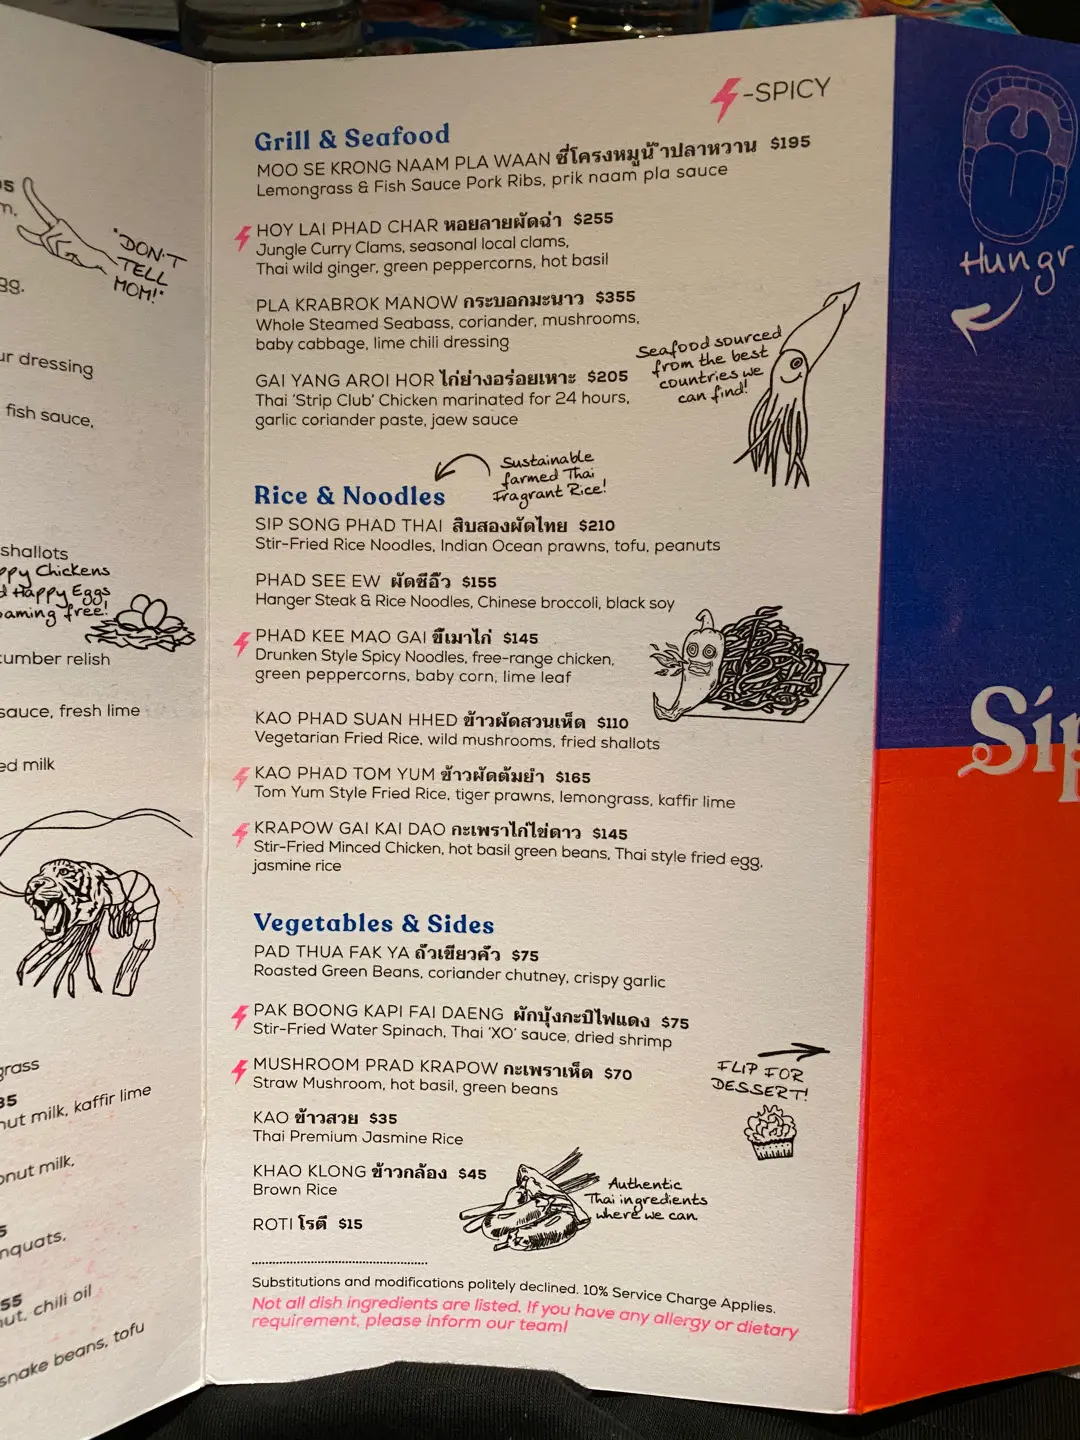 5
m,
"DON'T
TELL
MOM!"
gg.
ur dressing
fish sauce,
shallots
ppy Chickens
d Happy Eggs
oaming free!
cumber relish
sauce, fresh lime
ed milk
grass
35
nut milk, kaffir lime
onut milk,
5
nquats,
55
nut, chili oil
snake beans, tofu
-SPICY
Grill & Seafood
MOO SE KRONG NAAM PLA WAAN ซี่โครงหมูน้ำปลาหวาน $195
Lemongrass & Fish Sauce Pork Ribs, prik naam pla sauce
HOY LAI PHAD CHAR หอยลายผัดฉ่า $255
Jungle Curry Clams, seasonal local clams,
Thai wild ginger, green peppercorns, hot basil
PLA KRABROK MANOW กระบอกมะนาว $355
Whole Steamed Seabass, coriander, mushrooms,
baby cabbage, lime chili dressing
Seafood sourced
from the best
countries we
can find!
GAI YANG AROI HOR ไก่ย่างอร่อยเหาะ $205
Thai 'Strip Club' Chicken marinated for 24 hours,
garlic coriander paste, jaew sauce
Sustainable
farmed Thai
Fragrant Rice!
Rice & Noodles
SIP SONG PHAD THAI สิบสองผัดไทย $210
Stir-Fried Rice Noodles, Indian Ocean prawns, tofu, peanuts
PHAD SEE EW ผัดซีอิ๊ว $155
Hanger Steak & Rice Noodles, Chinese broccoli, black soy
PHAD KEE MAO GAI ขี้เมาไก่ $145
Drunken Style Spicy Noodles, free-range chicken,
green peppercorns, baby corn, lime leaf
KAO PHAD SUAN HHED ข้าวผัดสวนเห็ด $110
Vegetarian Fried Rice, wild mushrooms, fried shallots
KAO PHAD TOM YUM ข้าวผัดต้มยำ $165
Tom Yum Style Fried Rice, tiger prawns, lemongrass, kaffir lime
KRAPOW GAI KAI DAO กะเพราไก่ไข่ดาว $145
Stir-Fried Minced Chicken, hot basil green beans, Thai style fried egg,
jasmine rice
Vegetables & Sides
PAD THUA FAK YA ถั่วเขียวคั่ว $75
Roasted Green Beans, coriander chutney, crispy garlic
PAK BOONG KAPI FAI DAENG ผักบุ้งกะปิไฟแดง $75
Stir-Fried Water Spinach, Thai 'XO' sauce, dried shrimp
MUSHROOM PRAD KRAPOW กะเพราเห็ด $70
Straw Mushroom, hot basil, green beans
FLIP FOR
DESSERT!
KAO ข้าวสวย $35
Thai Premium Jasmine Rice
KHAO KLONG ข้าวกล้อง $45
Brown Rice
ROTI โรตี $15
Authentic
Thai ingredients
where we can
Substitutions and modifications politely declined. 10% Service Charge Applies.
Not all dish ingredients are listed. If you have any allergy or dietary
requirement, please inform our team!
Hungr
Sip